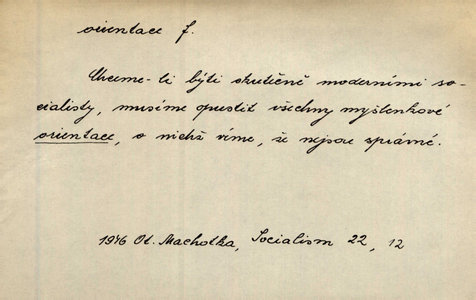 orientace f.
Chceme-li býti skutečně moderními so-
cialisty, musíme opustit všechny myšlenkové
orientace, o nichž víme, že nejsou správné.
1946 Ot. Machotka, Socialism 22, 12